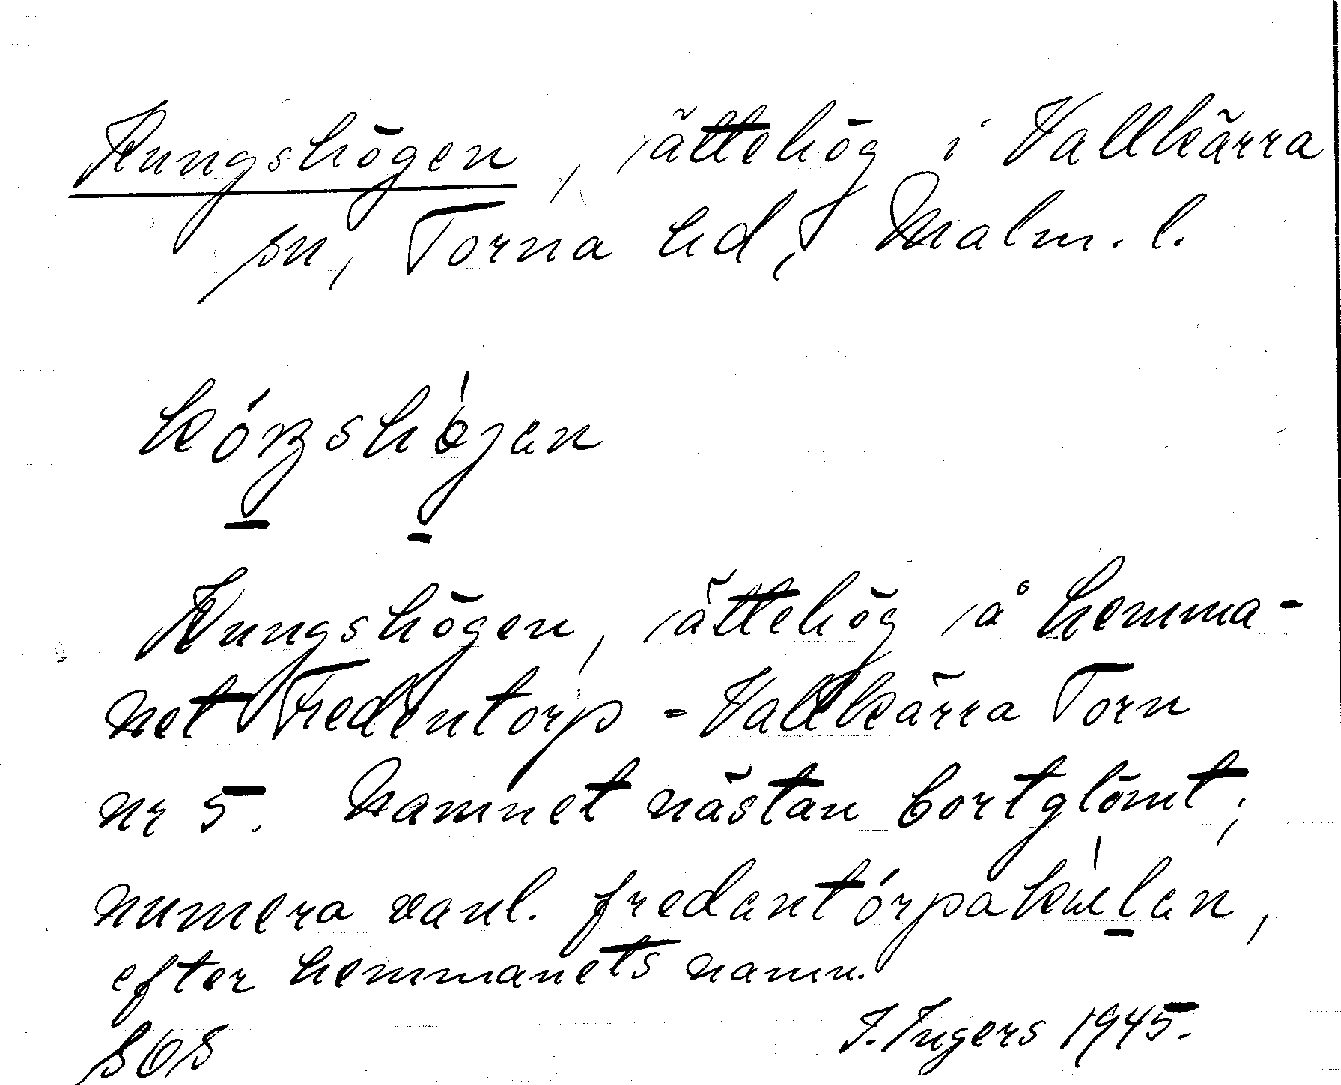 Kungshögen, ättehög i Vallkärra
sn, Torna hd, Malm. l.
kóŋshǿjan
Kungshögen, ättehög på hemma-
net Fredentorp - Vallkärra Torn
nr 5. Namnet nästan bortglömt;
numera vanl. fredantórpakúlan,
efter hemmanets namn.
SOS I. Ingers 1945.